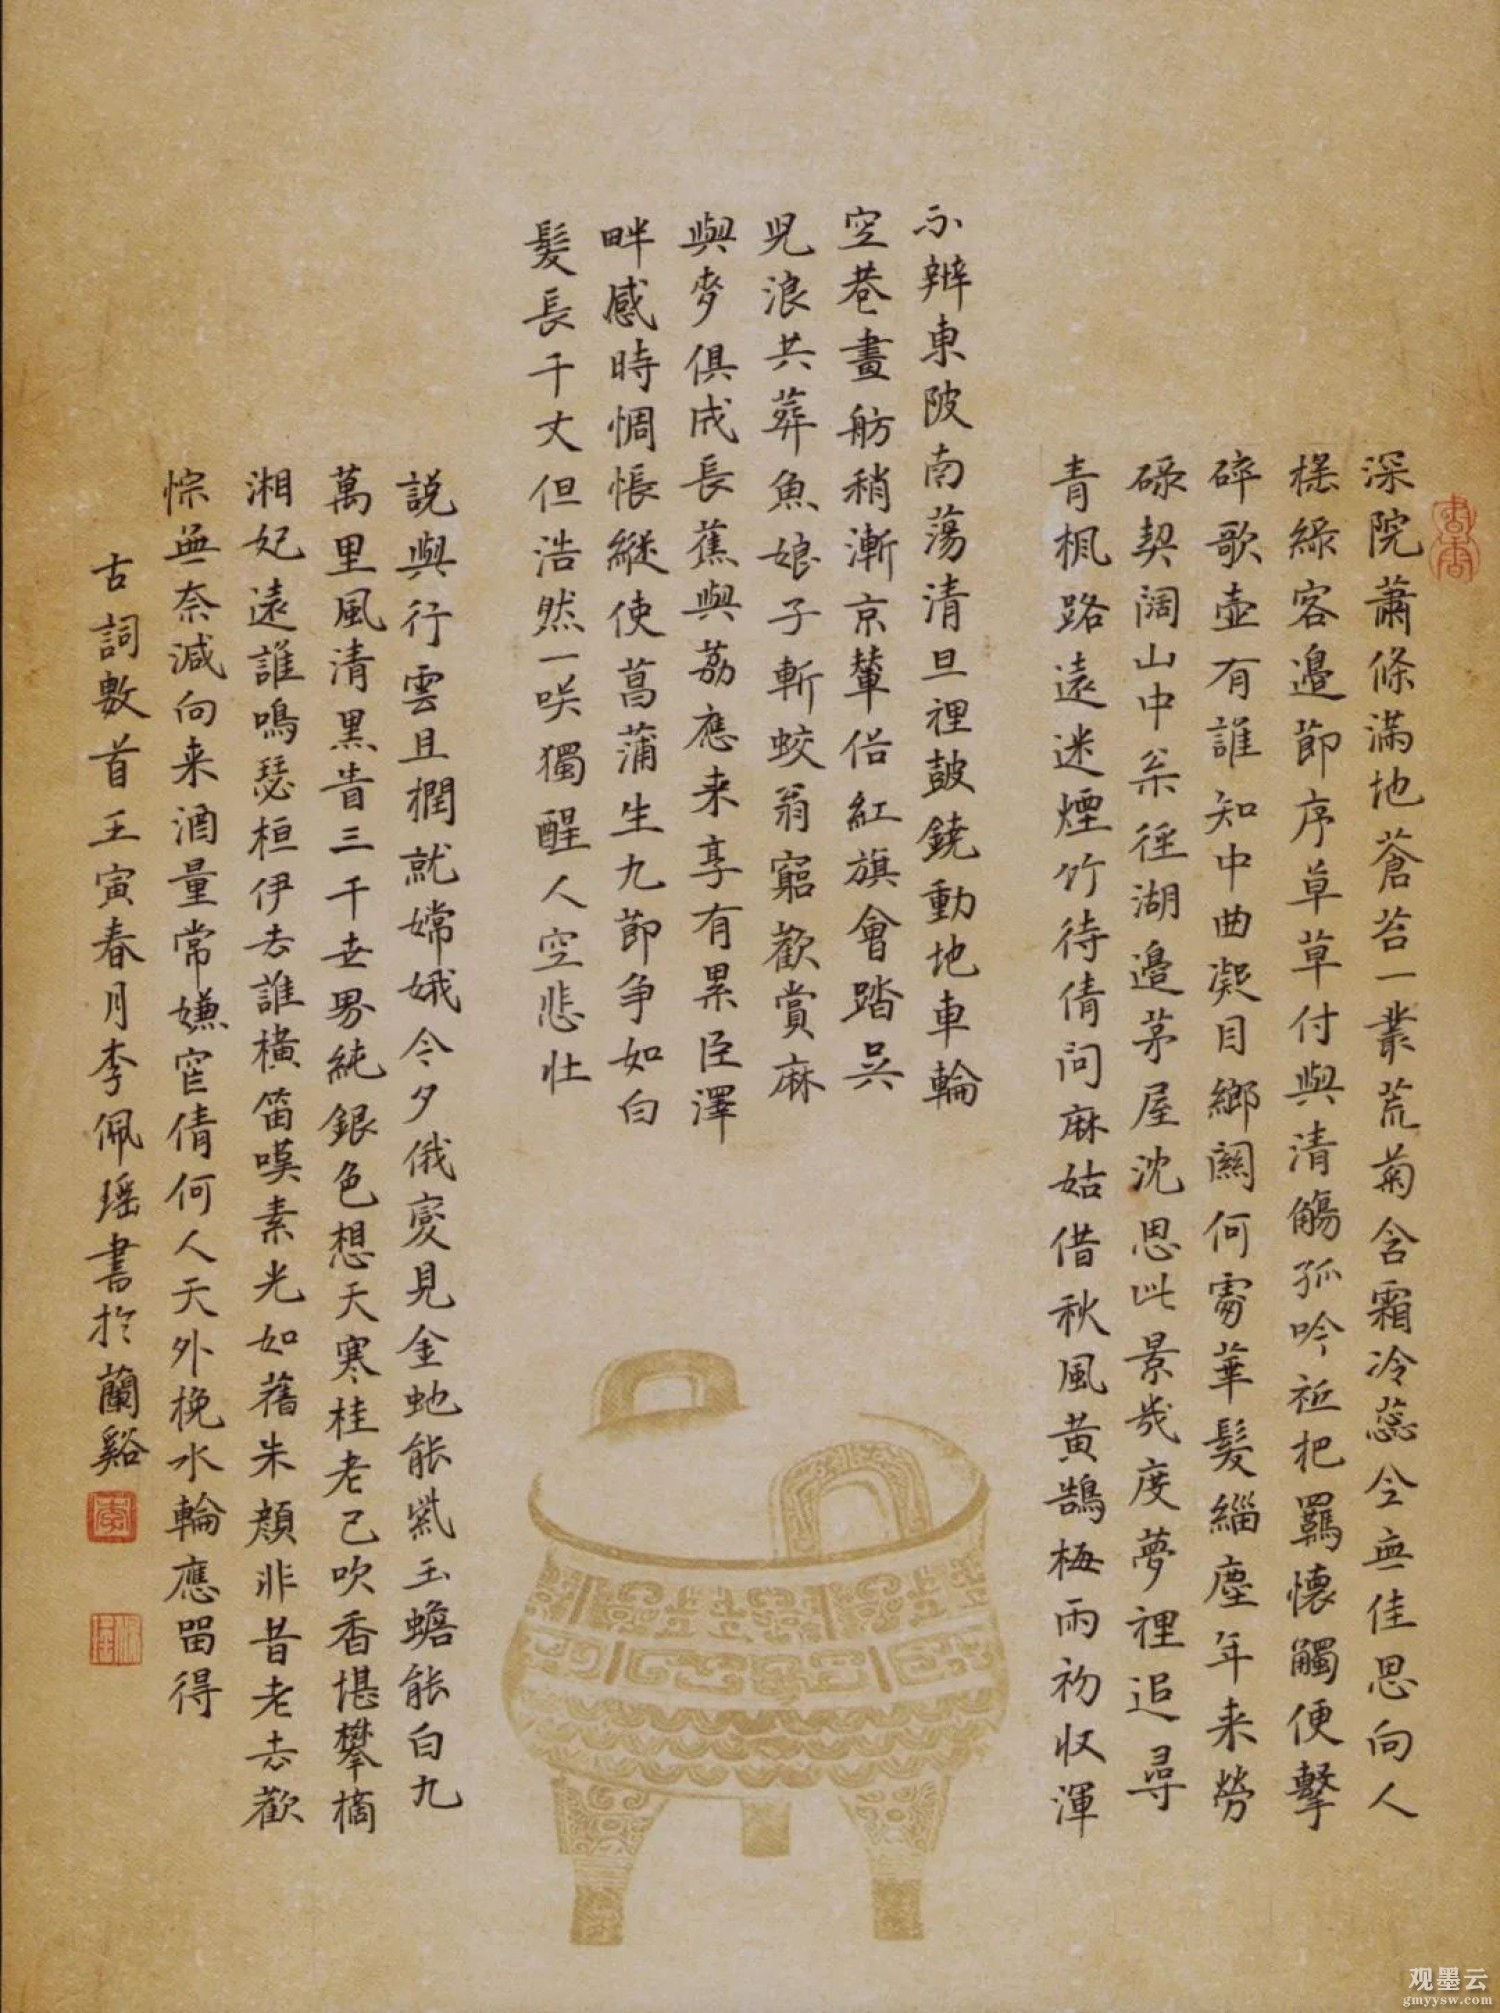 深院蕭條滿地蒼苔一叢荒菊含霜冷蕊全無佳思向人
搖綠客邊節序草草付與清觴孤吟袛把羈懷觸便擊
碎歌壺有誰知中曲凝目鄉關何處華髮緇塵年來勞
碌契闊山中桒徑湖邊茅屋沈思此景幾度夢裡追尋
青楓路遠迷煙竹待倩問麻姑借秋風黃鵠梅雨初收渾
不辨東陂南蕩清旦裡鼓鐃動地車輪
空巷畫舫稍漸京輦俗紅旗會踏吳
兒浪共葬魚娘子斬蛟翁窮歡賞麻
與麥俱成長蕉與荔應来享有累臣澤
畔感時惆悵縱使菖蒲生九節争如白
髮長千丈但浩然一咲獨醒人空悲壯
説與行雲且撋就嫦娥今夕俄變見金虵能紫玉蟾能白九
萬里風清黑眚三千世界純銀色想天寒桂老已吹香堪攀摘
湘妃遠誰鳴瑟桓伊去誰橫笛嘆素光如舊朱顏非昔老去歡
悰無奈減向来酒量常嫌窄倩何人天外挽水輪應留得
古詞數首壬寅春月李佩瑶書於蘭谿
書香
李
观墨云
gmyysw.com